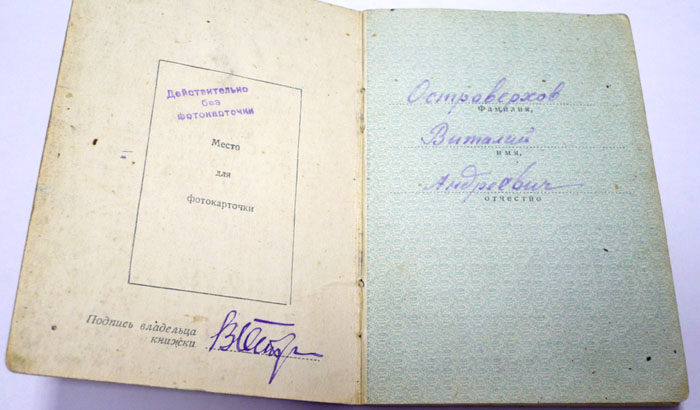 Действительно
без
фотокарточки
Место
для
фотокарточки
Подпись владельца
книжки
Остраверхов
Фамилия,
Виталий
имя,
Андреевич
отчество